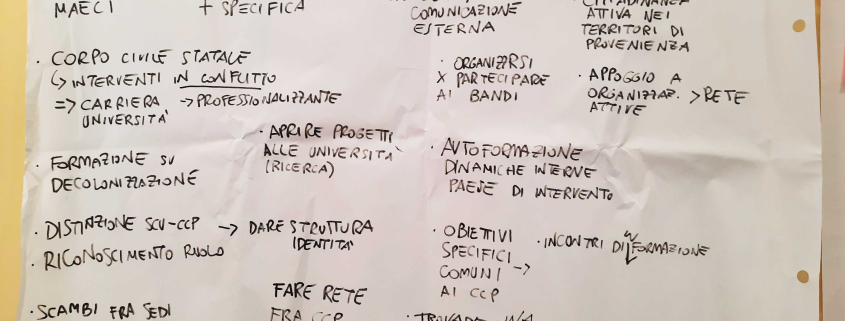 MAECI
+ SPECIFICA
COMUNICAZIONE
ESTERNA
CITTADINANZA
ATTIVA NEI
TERRITORI DI
PROVENIENZA
· CORPO CIVILE STATALE
↳ INTERVENTI IN CONFLITTO
=> CARRIERA → PROFESSIONALIZZANTE
UNIVERSITA'
· ORGANIZZRSI
X PARTECIPARE
AI BANDI
· APPOGGIO A
ORGANIZZAZ. > RETE
ATTIVE
· FORMAZIONE SU
DECOLONIZZAZIONE
· APRIRE PROGETTI
ALLE UNIVERSITA'
(RICERCA)
· AUTOFORMAZIONE
DINAMICHE INTERNE
PAESE DI INTERVENTO
· DISTINZIONE SCU-CCP → DARE STRUTTURA
IDENTITA'
· RICONOSCIMENTO RUOLO
· OBIETTIVI
SPECIFICI
COMUNI →
AI CCP
· INCONTRI DI FORMAZIONE
· SCAMBI FRA SEDI
FARE RETE
FRA CCP
· TROVARE